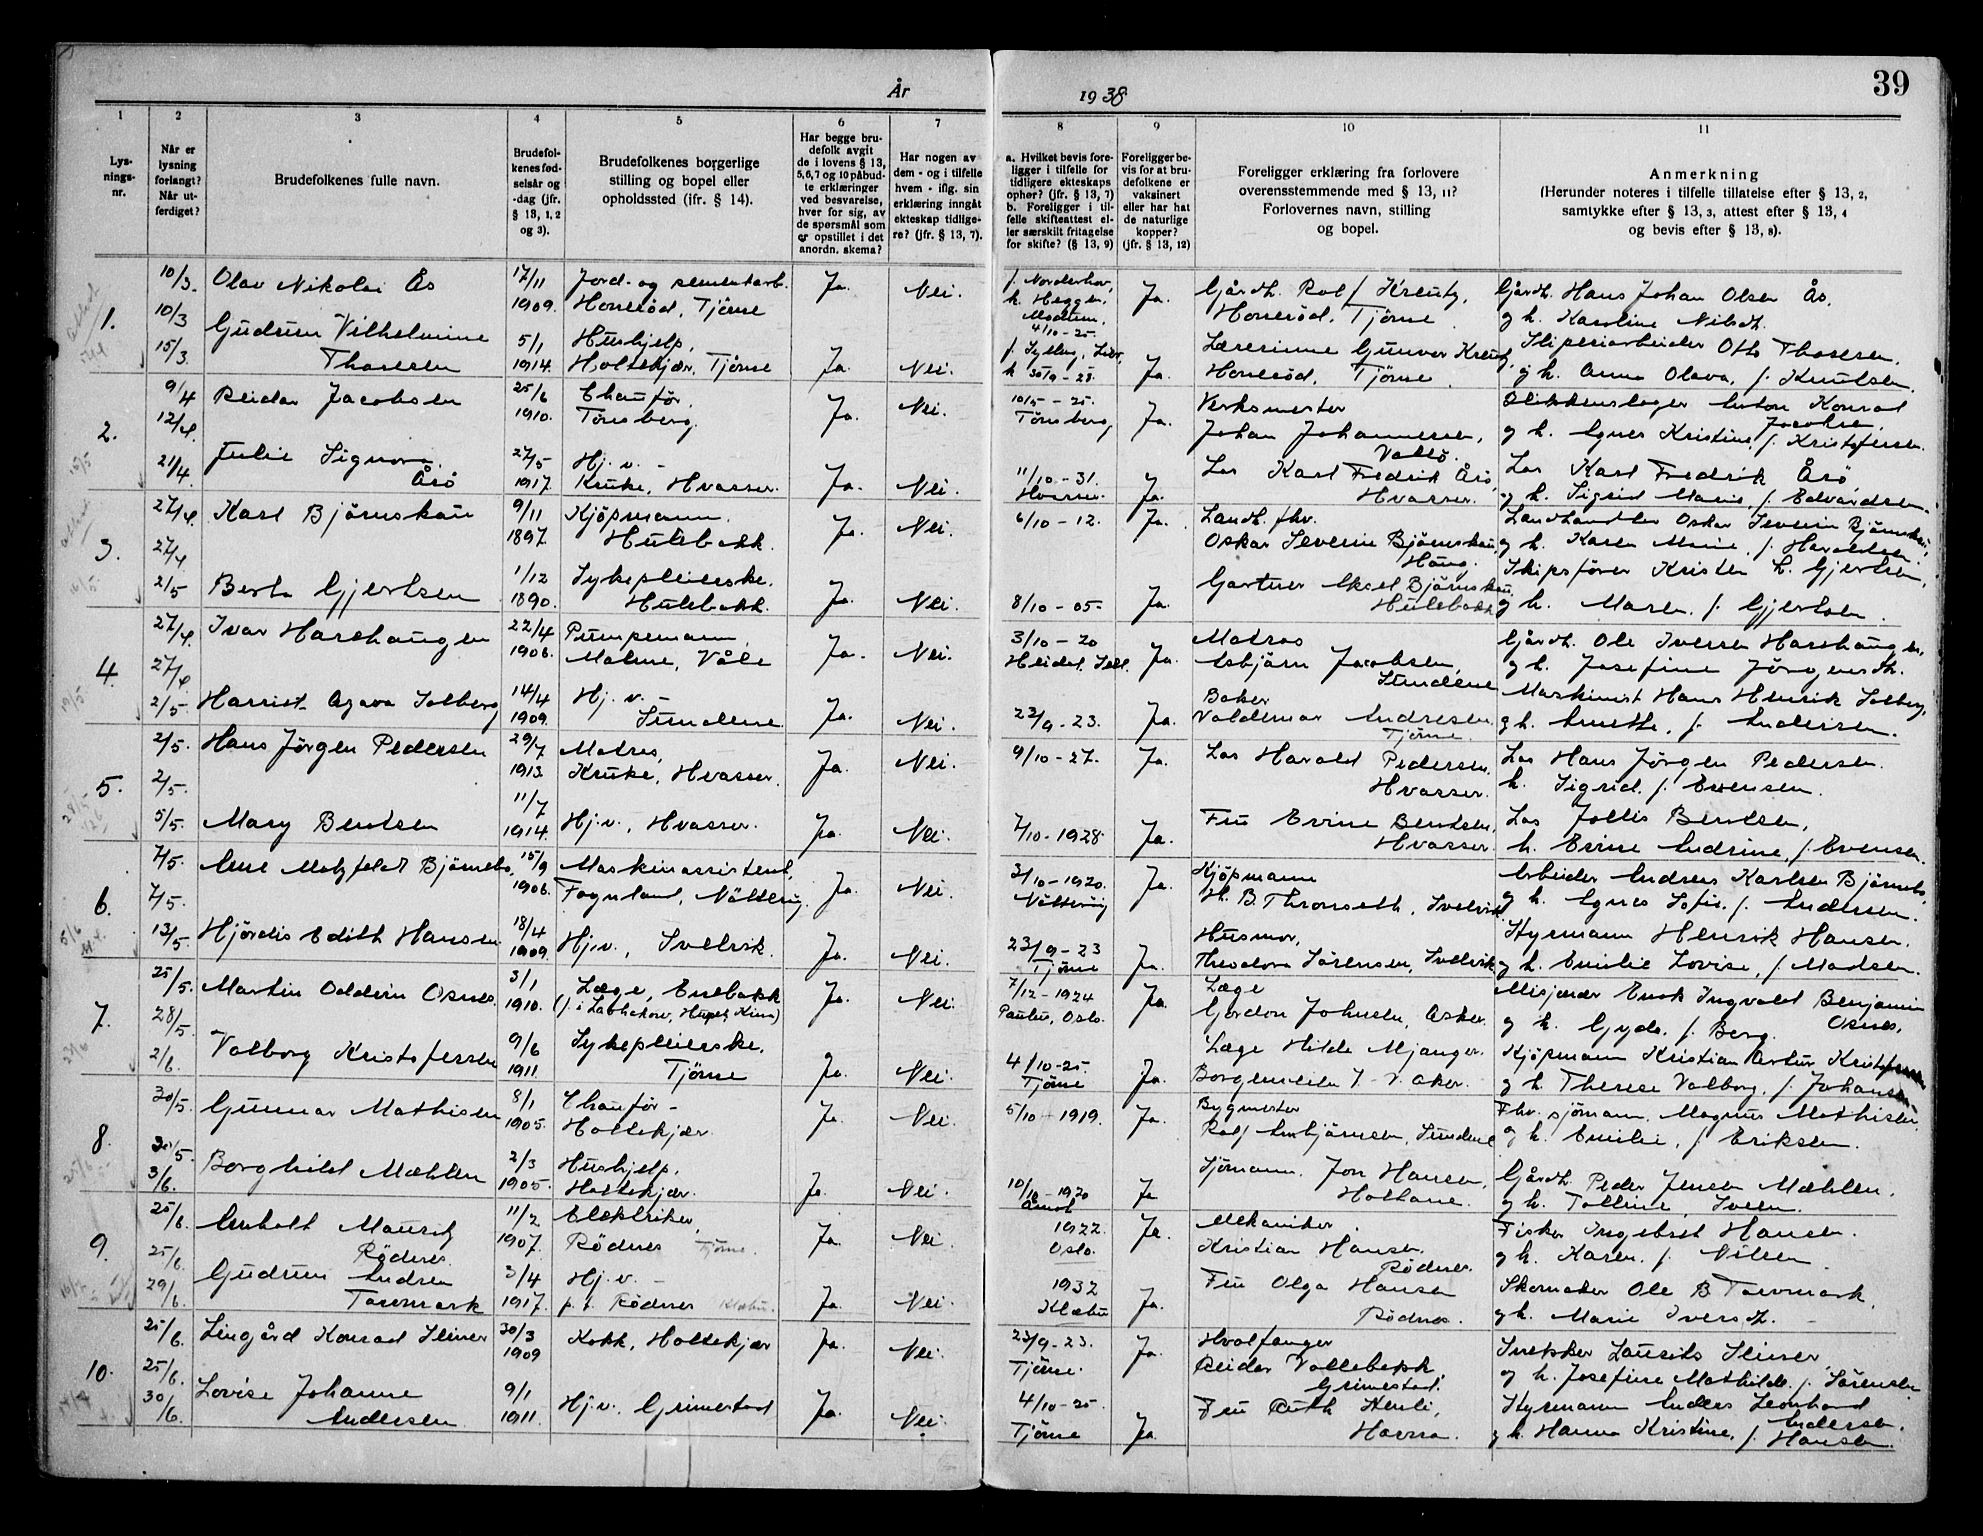 39
År 1938
1
2
3
4
5
6
7
8
9
10
11
Lys-
nings-
nr.
Når er
lysning
forlangt?
Når ut-
ferdiget?
Brudefolkenes fulle navn.
Brudefol-
kenes fød-
selsår og
-dag (jfr.
§ 13, 1, 2
og 3).
Brudefolkenes borgerlige
stilling og bopel eller
opholdssted (ifr. § 14).
Har begge bru-
defolk avgit
de i lovens § 13,
5,6,7 og 10 påbud-
te erklæringer
ved besvarelse,
hver for sig, av
de spørsmål som
er opstillet i det
anordn. skema?
Har nogen av
dem - og i tilfelle
hvem - iflg. sin
erklæring inngåt
ekteskap tidlige-
re? (jfr. § 13, 7).
a. Hvilket bevis fore-
ligger i tilfelle for
tidligere ekteskaps
ophør? (jfr. § 13, 7)
b. Foreligger i til-
felle skifteattest el-
ler særskilt fritagelse
for skifte? (§ 13, 9)
Foreligger be-
vis for at bru-
defolkene er
vaksinert
eller har hat
de naturlige
kopper?
(jfr. § 13, 12)
Foreligger erklæring fra forlovere
overensstemmende med § 13, 11?
Forlovernes navn, stilling
og bopel.
Anmerkning
(Herunder noteres i tilfelle tillatelse efter § 13, 2,
samtykke efter § 13, 3, attest efter § 13, 4
og bevis efter § 13, 8).
1.
10/3. Olav Nikolai Ås 17/11 Jord- og sementarb. Ja. Nei. f. Norderhov, Ja. Gårdb. Rolf Kreutz, Gårdb. Hans Johan Olsen Ås,
10/3 1909. Honerød, Tjøme k. Heggen, Modum, 4/10-25. Honerød, Tjøme g h. Karoline Nilsdt.
15/3. Gudrun Vilhelmine 5/1 Hushjelp, Lærerinne Gunvor Kreutz Sliperiarbeider Otto Thoresen,
Thoresen 1914. Holtekjær, Tjøme Ja. Nei. k 30/9-28. Ja. Honerød, Tjøme. g h. Anna Olava, f. Knutsen.
2.
9/4 Reidar Jacobsen 25/6 Chaufør, Ja. Nei. 10/5-25. Ja. Verksmester Blikkenslager Anton Konrad Jacobsen
12/4. 1910. Tønsberg Tønsberg Johan Johannesen, Vallø. og h. Agnes Kristine, f. Kristofersen.
21/4 Julie Signora 27/5 Hj. v. - 11/10-31. Los Karl Fredrik Årø, Los Karl Fredrik Årø
Årø 1917. Kruke, Hvasser. Ja. Nei. Hvasser. Ja. Hvasser. og h. Sigrid Marie, f. Edvardsen.
3.
27/4. Karl Bjørnskau 9/11 Kjøpmann. Ja. Nei. 6/10-12. Ja. Landh. fhv. Landhandler Oskar Severin Bjørnskau,
27/4 1897. Hulebakk. Oskar Severin Bjørnskau, Haug. og h. Karen Marie, f. Haraldsen.
2/5 Berta Gjertsen 1/12 Sykepleierske. Gartner Aksel Bjørnskau, Skipsfører Kristen h. Gjertsen,
1890. Hulebakk. Ja. Nei. 8/10-05. Ja. Hulebakk. g h. Maren. f. Gjertsen.
4.
27/4. Ivar Harehaugen 22/4 Pumpemann, Ja. Nei. 3/10-20 Ja. Matros Gårdb. Ole Iversen Harehaugen,
27/4 1906. Malme, Våle Heidal, Sel. Asbjørn Jacobsen, Sundene g h. Josefine Jørgensdt.
2/5. Harriet Agava Solberg 14/4 Hj. v. - Baker Maskinist Hans Henrik Solberg,
1909. Sundene. Ja. Nei. 23/9-23. Ja. Valdemar Andresen, Tjøme. g h. Anette, f. Andersen.
5.
2/5. Hans Jørgen Pedersen 29/7 Matros, Ja. Nei. 9/10-27. Ja. Los Harald Pedersen. Los Hans Jørgen Pedersen.
2/5. 1913. Kruke, Hvasser. Hvasser. h. Sigrid f. Evensen.
5/5. Mary Bentsen 11/7 1914. Hj.v., Hvasser. Ja. Nei. 7/10-1928. Ja. Fru Evine Bentsen, Hvasser. Los Jollis Bentsen, h. Evine Andrine, f. Evensen.
6.
7/5. Arne Matzfeldt Bjørnebo, 15/9 Maskinassistent, Ja. Nei. 3/10-1920. Ja. Kjøpmann Arbeider Andreas Karlsen Bjørnebo,
7/5. 1906. Fognland, Nøtterøy Nøtterøy H. B. Thronseth, Svelvik g h. Agnes Sofie, f. Andersen.
13/5. Hjørdis Edith Hansen 18/4 Hj.v., Svelvik. 23/9-23 Husmor, Styrmann Henrik Hansen.
1909. Ja. Nei. Tjøme Ja. Theodora Sørensen, Svelvik g h. Emilie Lovise, f. Madsen.
7.
25/5. Martin Oddvin Osnes. 3/1 Læge, Enebakk Ja. Nei. 7/12-1924 Ja. Læge Misjonær Enok Ingvald Benjamin Osnes,
28/5. 1910. Paulus, Oslo. Gordon Johnsen, Asker. og h. Gyda. f. Berg.
2/6. Valborg Kristofersen 9/6 Sykepleierske. 4/10-25. Læge Hilde Mjanger. Kjøpmann Kristian Artur Kristofersen
1911. Tjøme Ja. Nei. Tjøme Ja. Borgenveien 7. V. Aker. g h. Therese Valborg. f. Johansen
8.
30/5. Gunnar Mathisen 8/1 Chaufør - Ja. Nei. 5/10-1919. Ja. Bygmester Fhv. sjømann Magnus Mathisen.
30/5. 1905. Holtekjær. Rolf Ambjørnsen, Sundene g h. Emilie, f. Eriksen.
3/6. Borghild Mæhlen 2/3 Hushjelp. Sjømann. Jon Hansen, Gårdb. Peder Jensen Mæhlen,
1905. Holtekjær. Ja. Nei. 10/10-1920 Åmot Ja Holtane. g h. Tolline, Sveen.
9.
25/6. Anholt Mauritz 11/2 Elektriker, Ja. Nei. 1922. Ja. Mekaniker Fisker Ingebret Hansen.
25/6. Rødnes. 1907. Rødnes Tjøme. Oslo. Kristian Hansen. Rødnes. g h. Karen, f. Nilsen
29/6. Gudrun Andrea 3/4 Hj. v. - 1932 Fru Olga Hansen Skomaker Ole B Tanemark,
Tanemark 1917. p. t. Rødnes Klæbu. Ja. Nei. Klæbu Ja. Rødnes. g h. Marie Iversdt. -
10.
25/6. Lingård Konrad Iliner 30/3 Kokk, Holtekjær Ja. Nei. 23/9-23. Ja. Hvalfanger Snekker Laurits Iliner
25/6. 1909 Tjøme. Reidar Vallebekk, Grimestad. og h. Josefine Mathilde. f. Sørensen
30/6. Lovise Johanne 9/1 Hj.v. Grimestad 4/10-25. Fru Ruth Henli, Styrmann Anders Leonhard Andersen,
Andersen 1911. Ja. Nei. Tjøme Ja. Havna. g h. Hanna Kristine, f. Hansen.